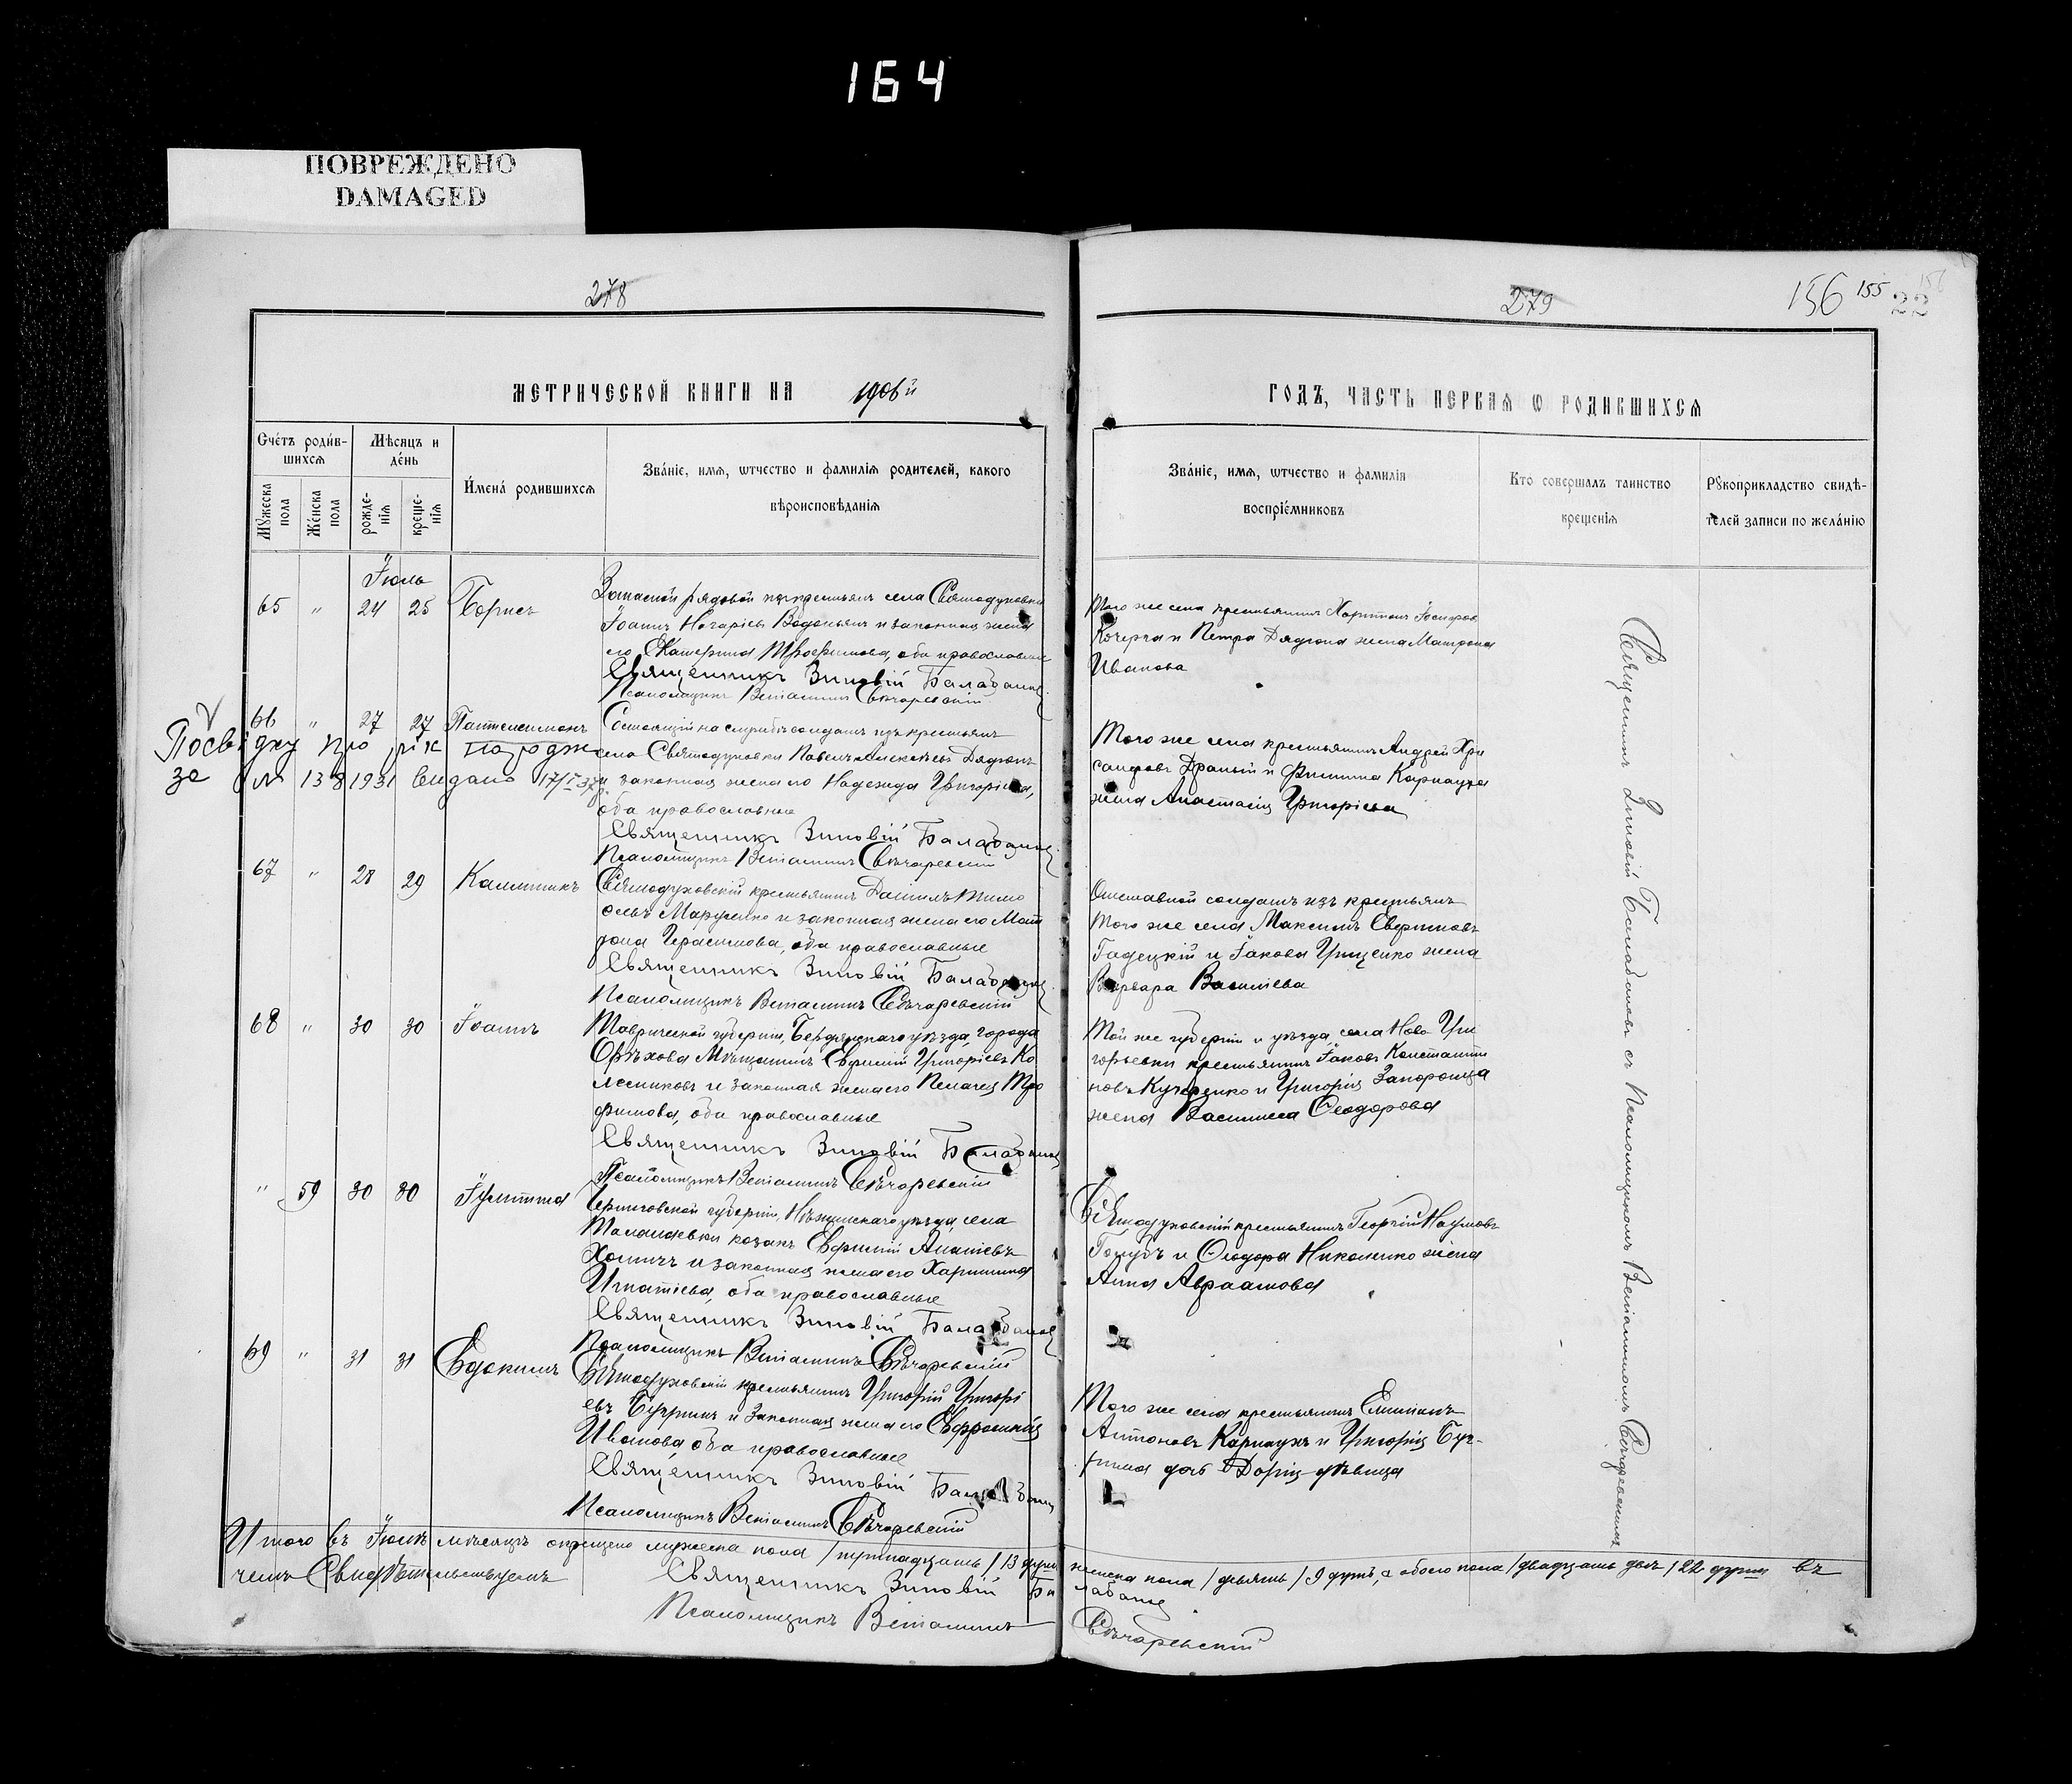 164
ПОВРЕЖДЕНО
DAMAGED
278
МЕТРИЧЕСКОЙ КНИГИ НА 1906й
Счётъ родившихся
Мѣсяцъ и день
Мужеска пола
Женска пола
рожденія
крещенія
Имена родившихся
Званіе, имя, ѡтчество и фамилія родителей, какого
вѣроисповѣданія
Іюль
65 " 24 25 Борисъ
Запасной рядовой изъ крестьянъ села Святодуховки
Іоаннъ Назаріевъ Водольянъ и законная жена
его Екатерина Трофимова, оба православные
Священникъ Зиновій Балабанов
Псаломщикъ Веніаминъ Свѣчаревскій
66 " 27 27 Пантелеимонъ
Состоящій на службѣ солдатъ изъ крестьянъ
села Святодуховки Павелъ Алексѣевъ Дядюнъ
и законная жена его Надежда Григоріева,
оба православные
Священникъ Зиновій Балабанов
Псаломщикъ Веніаминъ Свѣчаревскій
Посвідку про рік народж
за № 138 1931 видано 17/I 37 р.
67 " 28 29 Каллиникъ
Святодуховскій крестьянинъ Даніилъ Тимо
ѳеевъ Марущенко и законная жена его Мат
рона Герасимова, оба православные
Священникъ Зиновій Балабанов
Псаломщикъ Веніаминъ Свѣчаревскій
68 " 30 30 Іоаннъ
Таврической губерніи, Бердянскаго уѣзда, города
Орѣхова мѣщанинъ Евфимій Григоріевъ Ко
лесниковъ и законная жена его Пелагея Тро
фимова, оба православные
Священникъ Зиновій Балабанов
Псаломщикъ Веніаминъ Свѣчаревскій
" 59 30 30 Іулитта
Черниговской губерніи, Нѣжинскаго уѣзда, села
Талалаевки козакъ Евфимій Ананіевъ
Хоминъ и законная жена его Харитина
Игнатіева, оба православные
Священникъ Зиновій Балабанов
Псаломщикъ Веніаминъ Свѣчаревскій
69 " 31 31 Евдокимъ
Святодуховскій крестьянинъ Григорій Григорі
евъ и законная жена его Евфросинія
Иванова, оба православные
Священникъ Зиновій Балабанов
Псаломщикъ Веніаминъ Свѣчаревскій
Итого въ Іюлѣ мѣсяцѣ окрещено мужеска пола /тринадцать/ 13 душъ
чемъ Свидѣтельствуемъ
Священникъ Зиновій Ба
Псаломщикъ Веніаминъ
279
156 155 22
ГОДЪ, ЧАСТЬ ПЕРВАЯ Ѡ РОДИВШИХСЯ
Званіе, имя, ѡтчество и фамилія
воспріемниковъ
Кто совершалъ таинство
крещенія
Рукоприкладство свидѣ-
телей записи по желанію
Того же села крестьянинъ Харитонъ Іосифовъ
Кочерга и Петра Дядюна жена Матрона
Иванова
Того же села крестьянинъ Андрей Хри
санфовъ Драный и Филиппа Карнауха
жена Анастасія Григоріева
Отставной солдатъ изъ крестьянъ
того же села Максимъ
Гадецкій и Іакова Грищенко жена
Варвара Васильева
Той же губерніи и уѣзда, села Ново Гри
горьевки крестьянинъ Іаковъ Константи
новъ Кучеренко и Григорія Запорожца
жена Василисса Ѳеодорова
Святодуховскій крестьянинъ Георгій Наумовъ
Голубъ и Ѳеодора Николенко жена
Анна Авраамова
Того же села крестьянинъ Емиліанъ
Антоновъ Карнаухъ и Григорія
дочь Дарія дѣвица
Священникъ Зиновій Балабановъ съ Псаломщикомъ Веніаминомъ Свѣчаревскимъ
женска пола /девять/ 9 душъ, а обоего пола /двадцать двѣ/ 22 души въ
лабанов
Свѣчаревскій